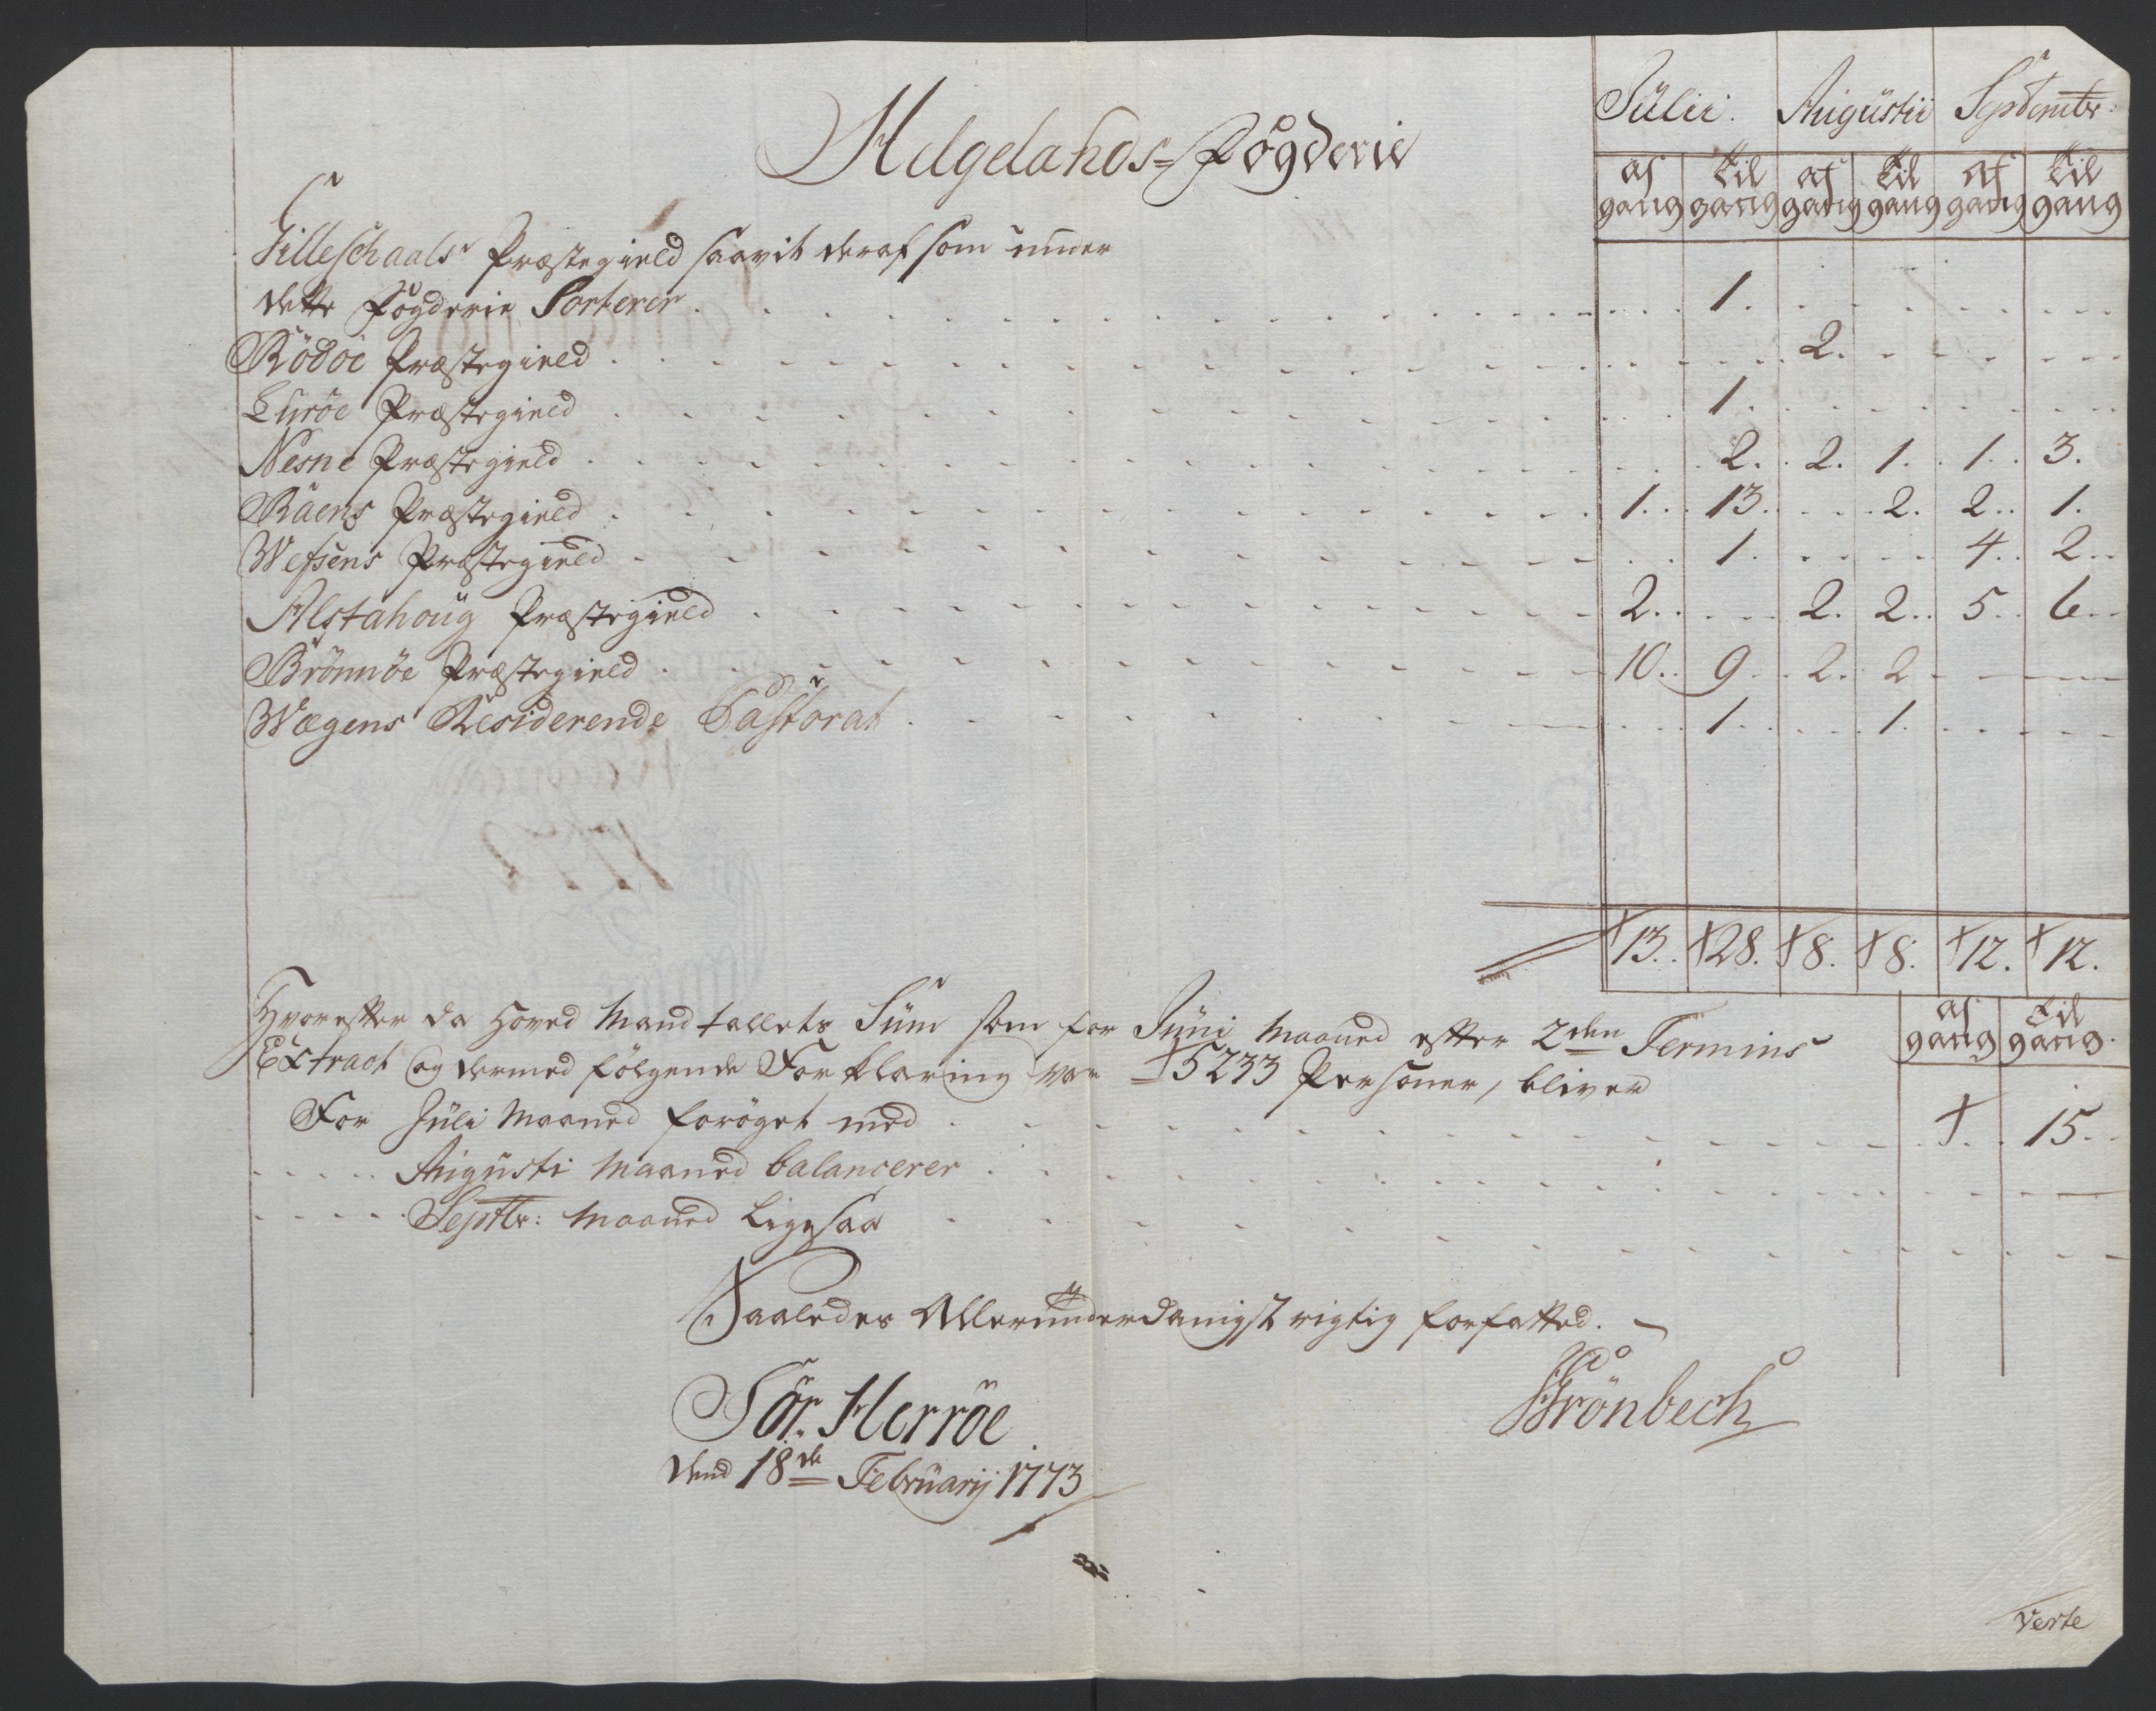 Jülii. Augüstii Septembr:
Helgelands-Fögderie
af gang til gang af gang til gang af gang til gang
Gilleschaals Præstegield saavit deraf som under
dette Fögderie Sorterer . . . 1. . . .
Rödöe Præstegield . . . 2. . . .
Luröe Præstegield . . . 1. . . .
Nesne Præstegield . . . 2. 2. 1. 1. 3.
Raens Præstegield . . . 1. 13. . . 2. 2. 1.
Wefsens Præstegield . . . 1. . . 4. 2.
Alstahoüg Præstegield . . . 2. . . 2. 2. 5. 6.
Brönnöe Præstegield . . . 10. 9. 2. 2 - - -
Wægens Residerende Pastorat . . . 1. . . 1. . . .
13. 28. 8. 8. 12. 12.
Hvorefter da Hoved Mandtallets Süm som for Jüni Maaned efter 2den Termins
af gang til gang.
Extract og dermed fölgende Forklaring var 5233 Personer, bliver
For Jüli Maaned foröget med . . . 15.
. . . . Augüsti Maaned balancerer . . .
. . . . Septbr: Maaned Ligesaa . . .
Saaledes Allerunderdanigst rigtig forfatted.
Sör. Herröe
Grönbech
dend 18de Febrüarij 1773
Verte